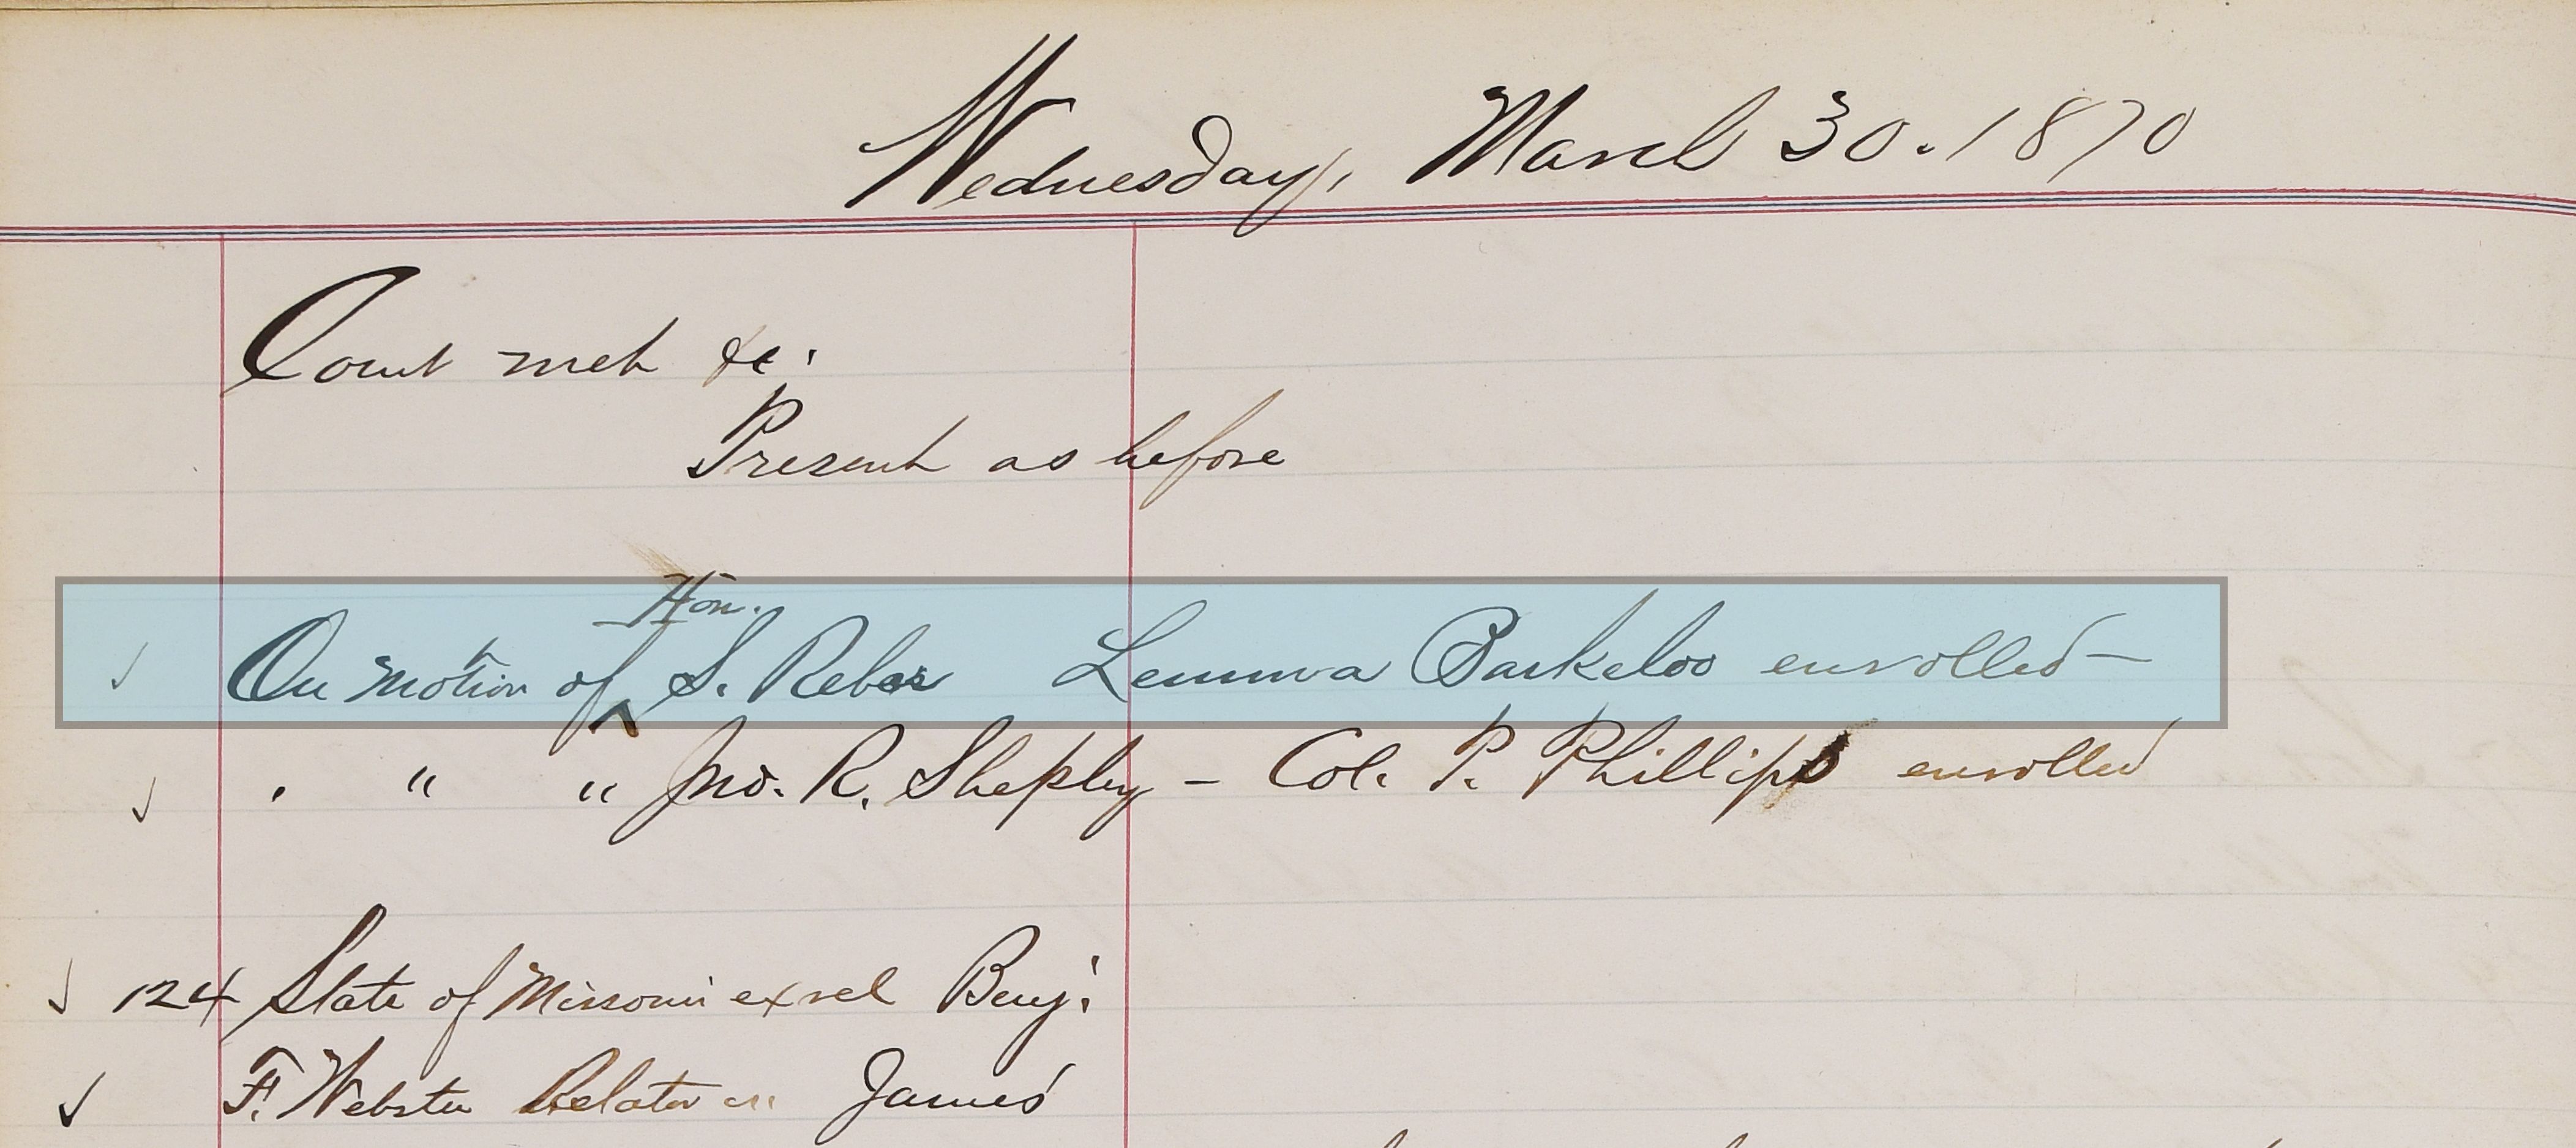 Wednesday, March 30. 1870
Court met &c.
Present as before
Hon.
On motion of ^ S. Reber Lemma Barkeloo enrolled –
" " " Jno. R. Shepley – Col. P. Phillips enrolled
124 State of Missouri ex rel Benj.
F. Webster Relator vs James